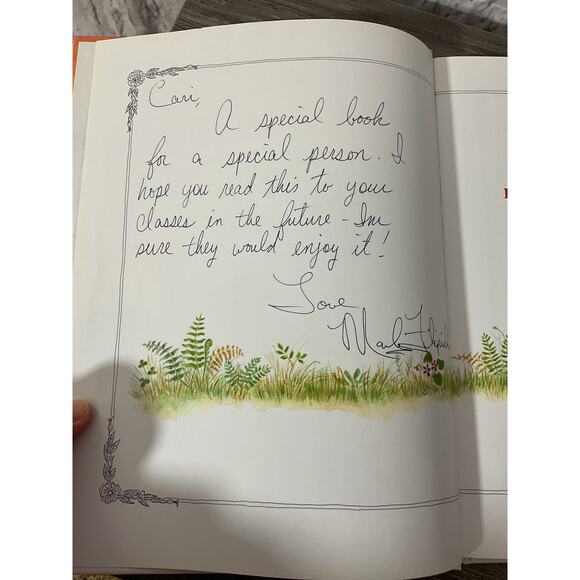 Cari,
A special book
for a special person. I
hope you read this to your
classes in the future - I'm
sure they would enjoy it!
Love